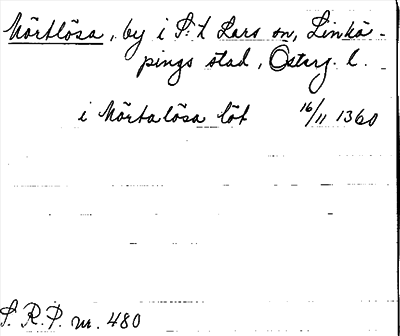 Mörtlösa, by i S:t Lars sn, Linkö-
pings stad, Österg. l.
i Mörtalösa löt 16/11 1360
S. R. P. nr. 480